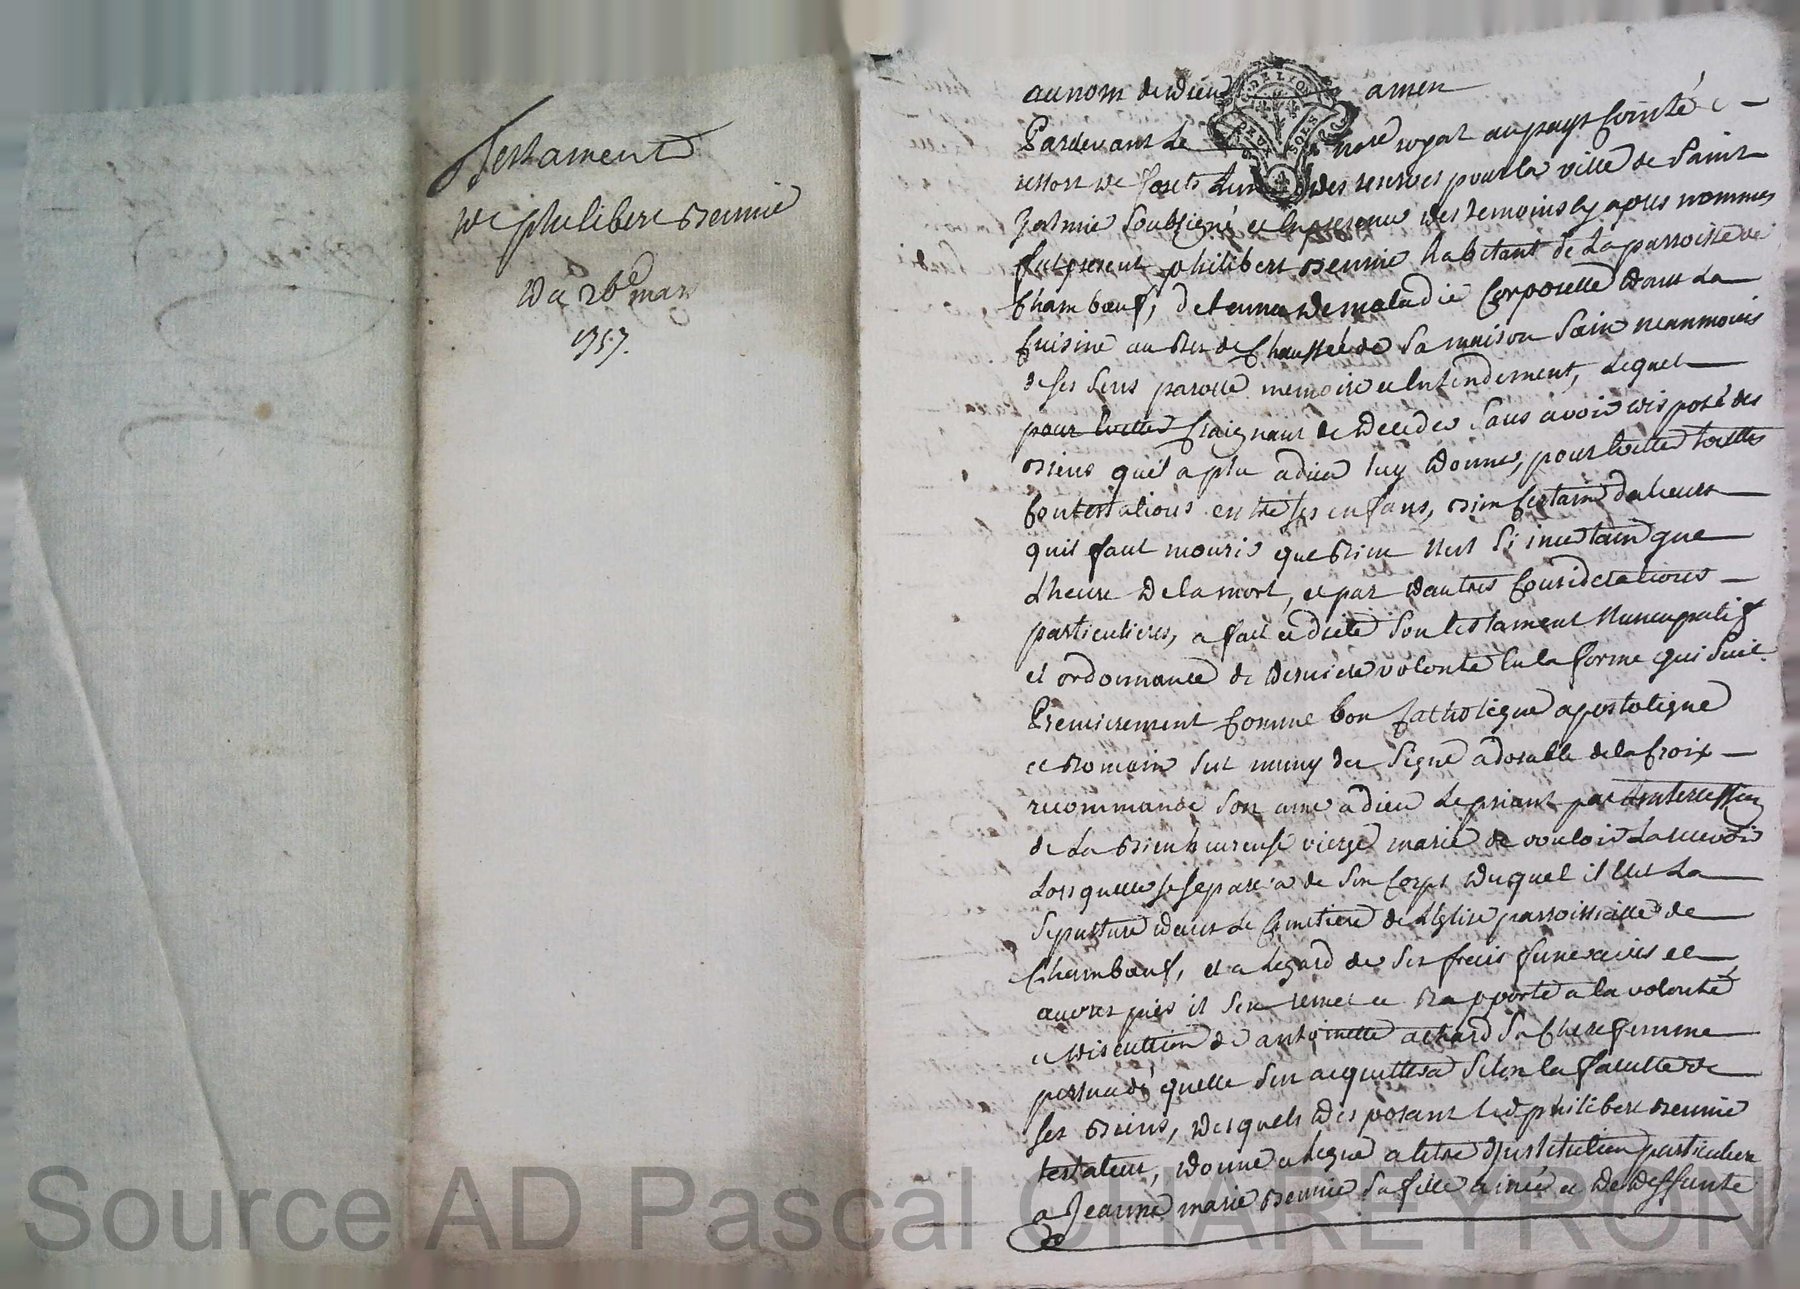 Testament
de philibert
Du 26e mars
1757.
au nom de dieu amen
G. DE LYON
DEUX SOLS
Pardevant le nore royal au pays Comté &
ressort de forets L'un des reservés pour la ville de Saint
Galmier Soubsigné et En presence des temoins cy apres nommes
fut present philibert habitant de La parroisse de
Chambœuf, detenu de maladie Corporelle dans La
Cuisine au Rez de Chaussée de Sa maison Sain neanmoins
de ses Sens parolle memoire et Entendement, Lequel
pour Eviter Craignant de deceder Sans avoir disposé des
Biens quil a plu a dieu luy donner, pour Eviter toutes
Contestations entre ses enfans, Bien Certain dailleurs
quil faut mourir que Rien N'est Si incertain que
L'heure de la mort, et par d'autres Considerations
particulieres, a fait et dicté Son testament Nuncupatif
et ordonnance de derniere volonté En la forme qui Suit.
Premierement Comme bon Catholique apostolique
et Romain s'est muny du Signe adorable de la Croix
recommande Son ame a dieu Le priant par L'intercession
de La Bienheureuse vierge marie de vouloir La recevoir
Lors quelle se separera de Son Corps duquel il Elit La
Sepulture dans Le Cimetiere de L'Eglise parroissialle de
Chambœuf, et a Legard de Ses frais funeraires et
œuvres pies il S'en remet et Rapporte a la volonté
et discretion de antoinette achard Sa Chere femme
persuadé quelle S'en acquittera Selon la faculté de
Ses Biens, desquels disposant Led. philibert
testateur, donne et Legue a titre d'Institution particuliere
a Jeanne marie Sa fille ainée et de deffunte
Source AD Pascal CHAREYRON